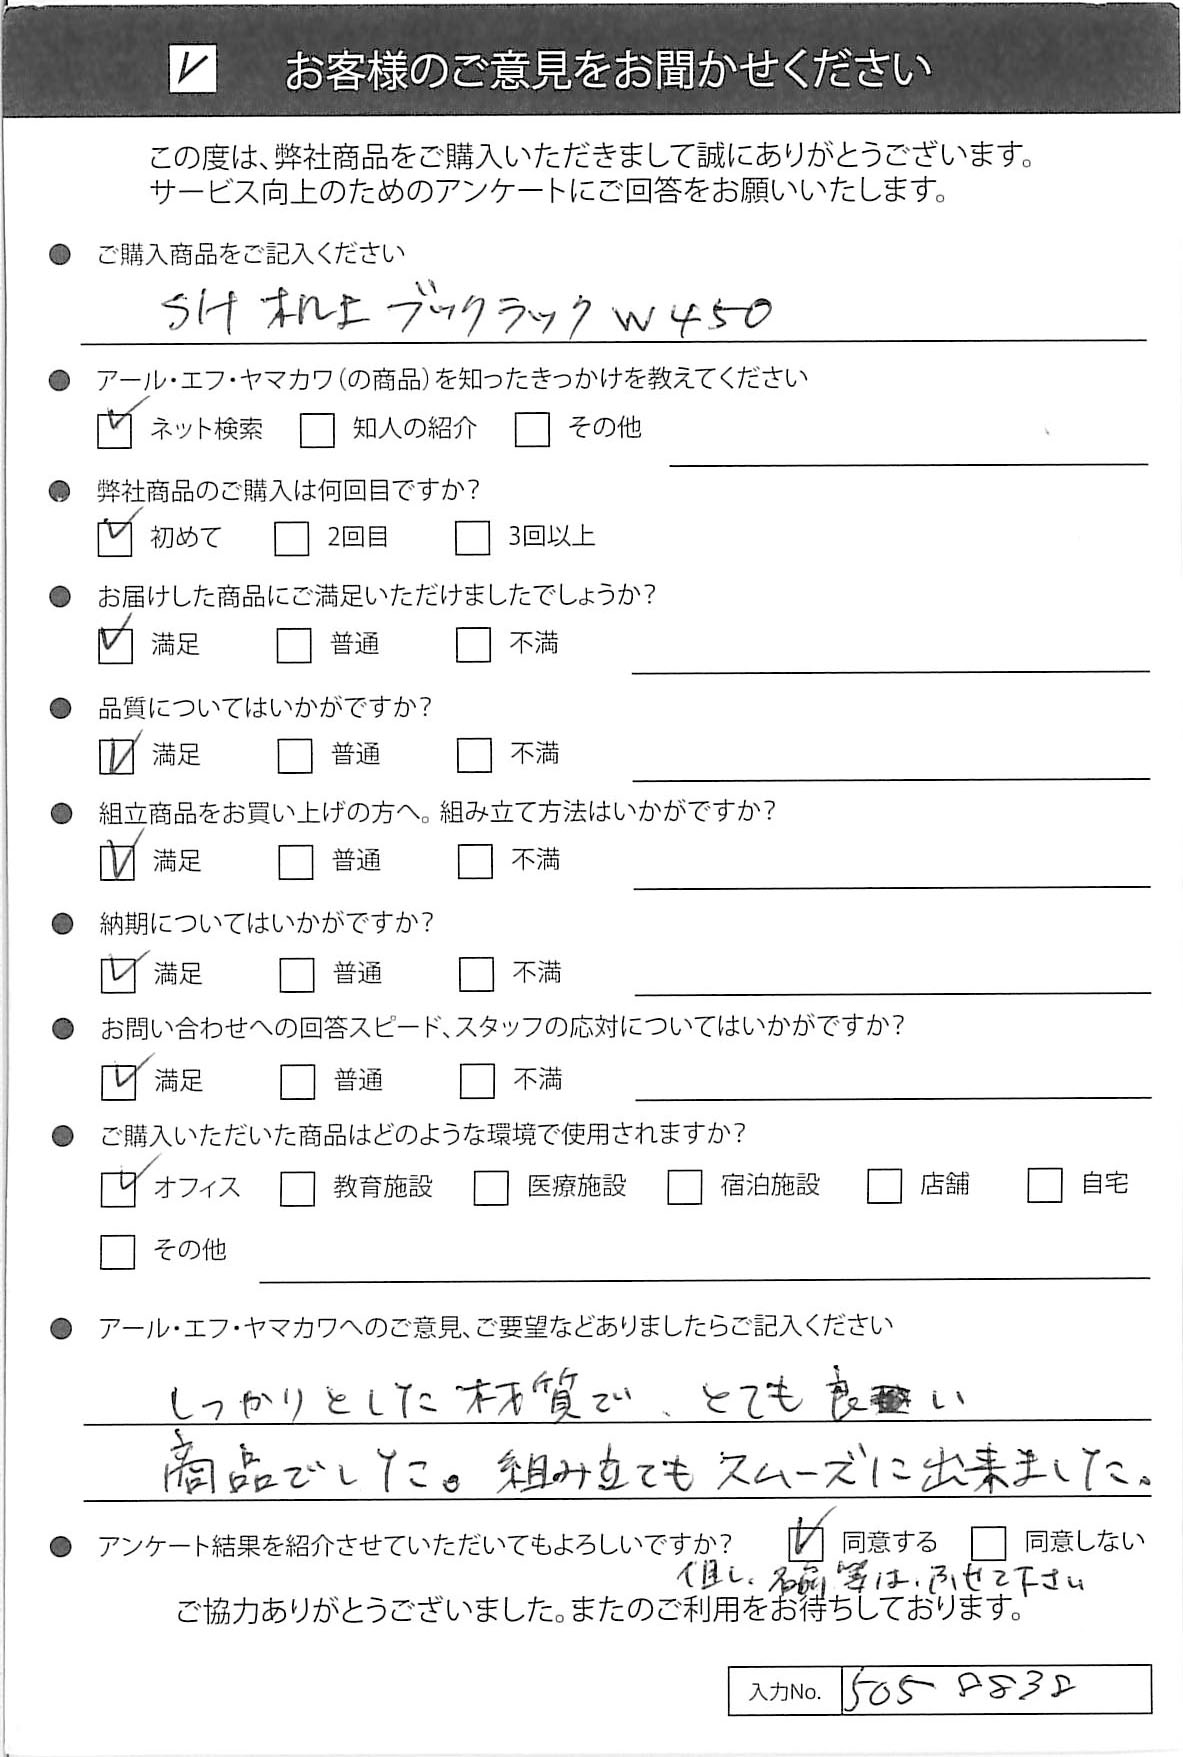 お客様のご意見をお聞かせください
この度は、弊社商品をご購入いただきまして誠にありがとうございます。
サービス向上のためのアンケートにご回答をお願いいたします。
● ご購入商品をご記入ください
SH 机上ブックラック W450
● アール・エフ・ヤマカワ(の商品)を知ったきっかけを教えてください
☑ ネット検索 □ 知人の紹介 □ その他
● 弊社商品のご購入は何回目ですか?
☑ 初めて □ 2回目 □ 3回以上
● お届けした商品にご満足いただけましたでしょうか?
☑ 満足 □ 普通 □ 不満
● 品質についてはいかがですか?
☑ 満足 □ 普通 □ 不満
● 組立商品をお買い上げの方へ。組み立て方法はいかがですか?
☑ 満足 □ 普通 □ 不満
● 納期についてはいかがですか?
☑ 満足 □ 普通 □ 不満
● お問い合わせへの回答スピード、スタッフの応対についてはいかがですか?
☑ 満足 □ 普通 □ 不満
● ご購入いただいた商品はどのような環境で使用されますか?
☑ オフィス □ 教育施設 □ 医療施設 □ 宿泊施設 □ 店舗 □ 自宅
□ その他
● アール・エフ・ヤマカワへのご意見、ご要望などありましたらご記入ください
しっかりとした材質で、とても良い
商品でした。組み立てもスムーズに出来ました。
● アンケート結果を紹介させていただいてもよろしいですか? ☑ 同意する □ 同意しない
但し、名前等は、ふせて下さい
ご協力ありがとうございました。またのご利用をお待ちしております。
入力No. 505 8838